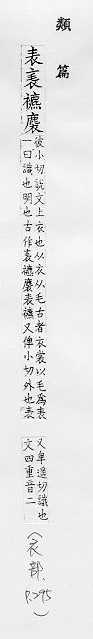 類篇
表㐮襛麃 彼小切說文上衣也从衣从毛古者衣裘以毛爲表
一曰識也明也古作㐮襛麃表襛又俾小切外也表
又卑遥切識也
文四重音二
(衣部, p.295)